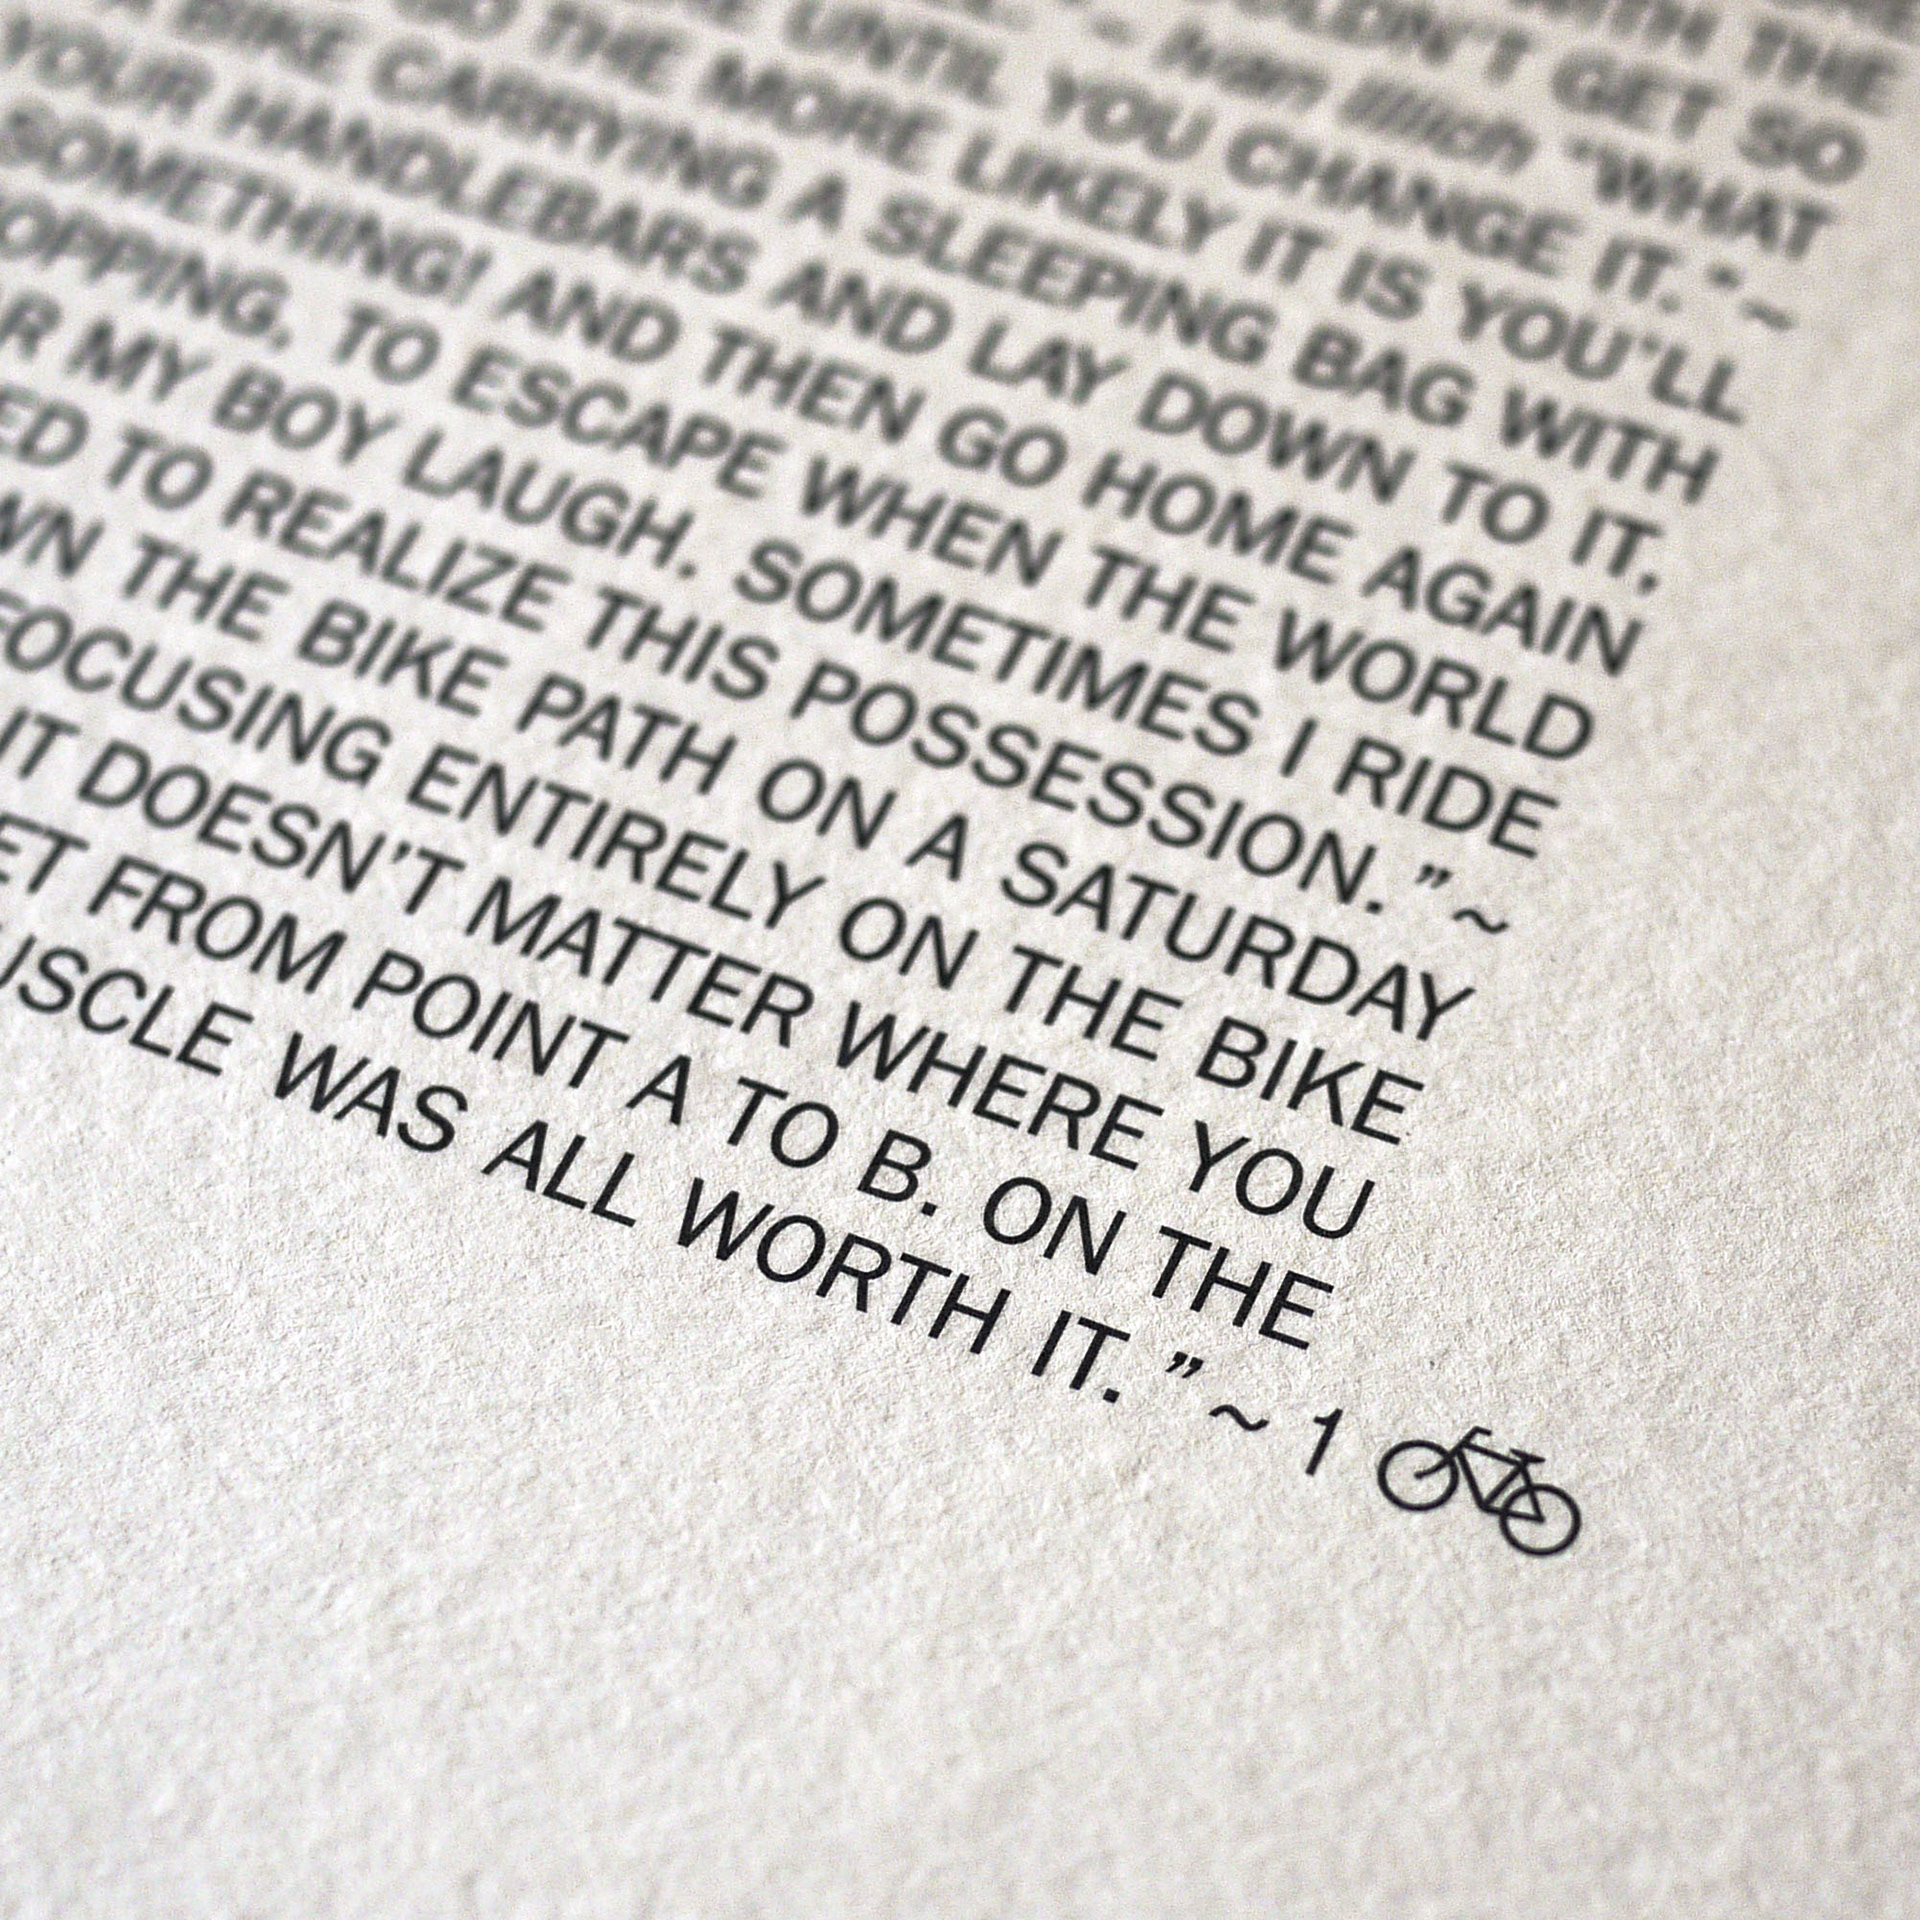 WITH THE
GET SO
~ Ivan Illich “WHAT
UNTIL YOU CHANGE IT.” ~
THE MORE LIKELY IT IS YOU’LL
BIKE CARRYING A SLEEPING BAG WITH
YOUR HANDLEBARS AND LAY DOWN TO IT,
SOMETHING! AND THEN GO HOME AGAIN
OPPING, TO ESCAPE WHEN THE WORLD
R MY BOY LAUGH. SOMETIMES I RIDE
ED TO REALIZE THIS POSSESSION.” ~
WN THE BIKE PATH ON A SATURDAY
FOCUSING ENTIRELY ON THE BIKE
IT DOESN’T MATTER WHERE YOU
ET FROM POINT A TO B. ON THE
USCLE WAS ALL WORTH IT.” ~ 1